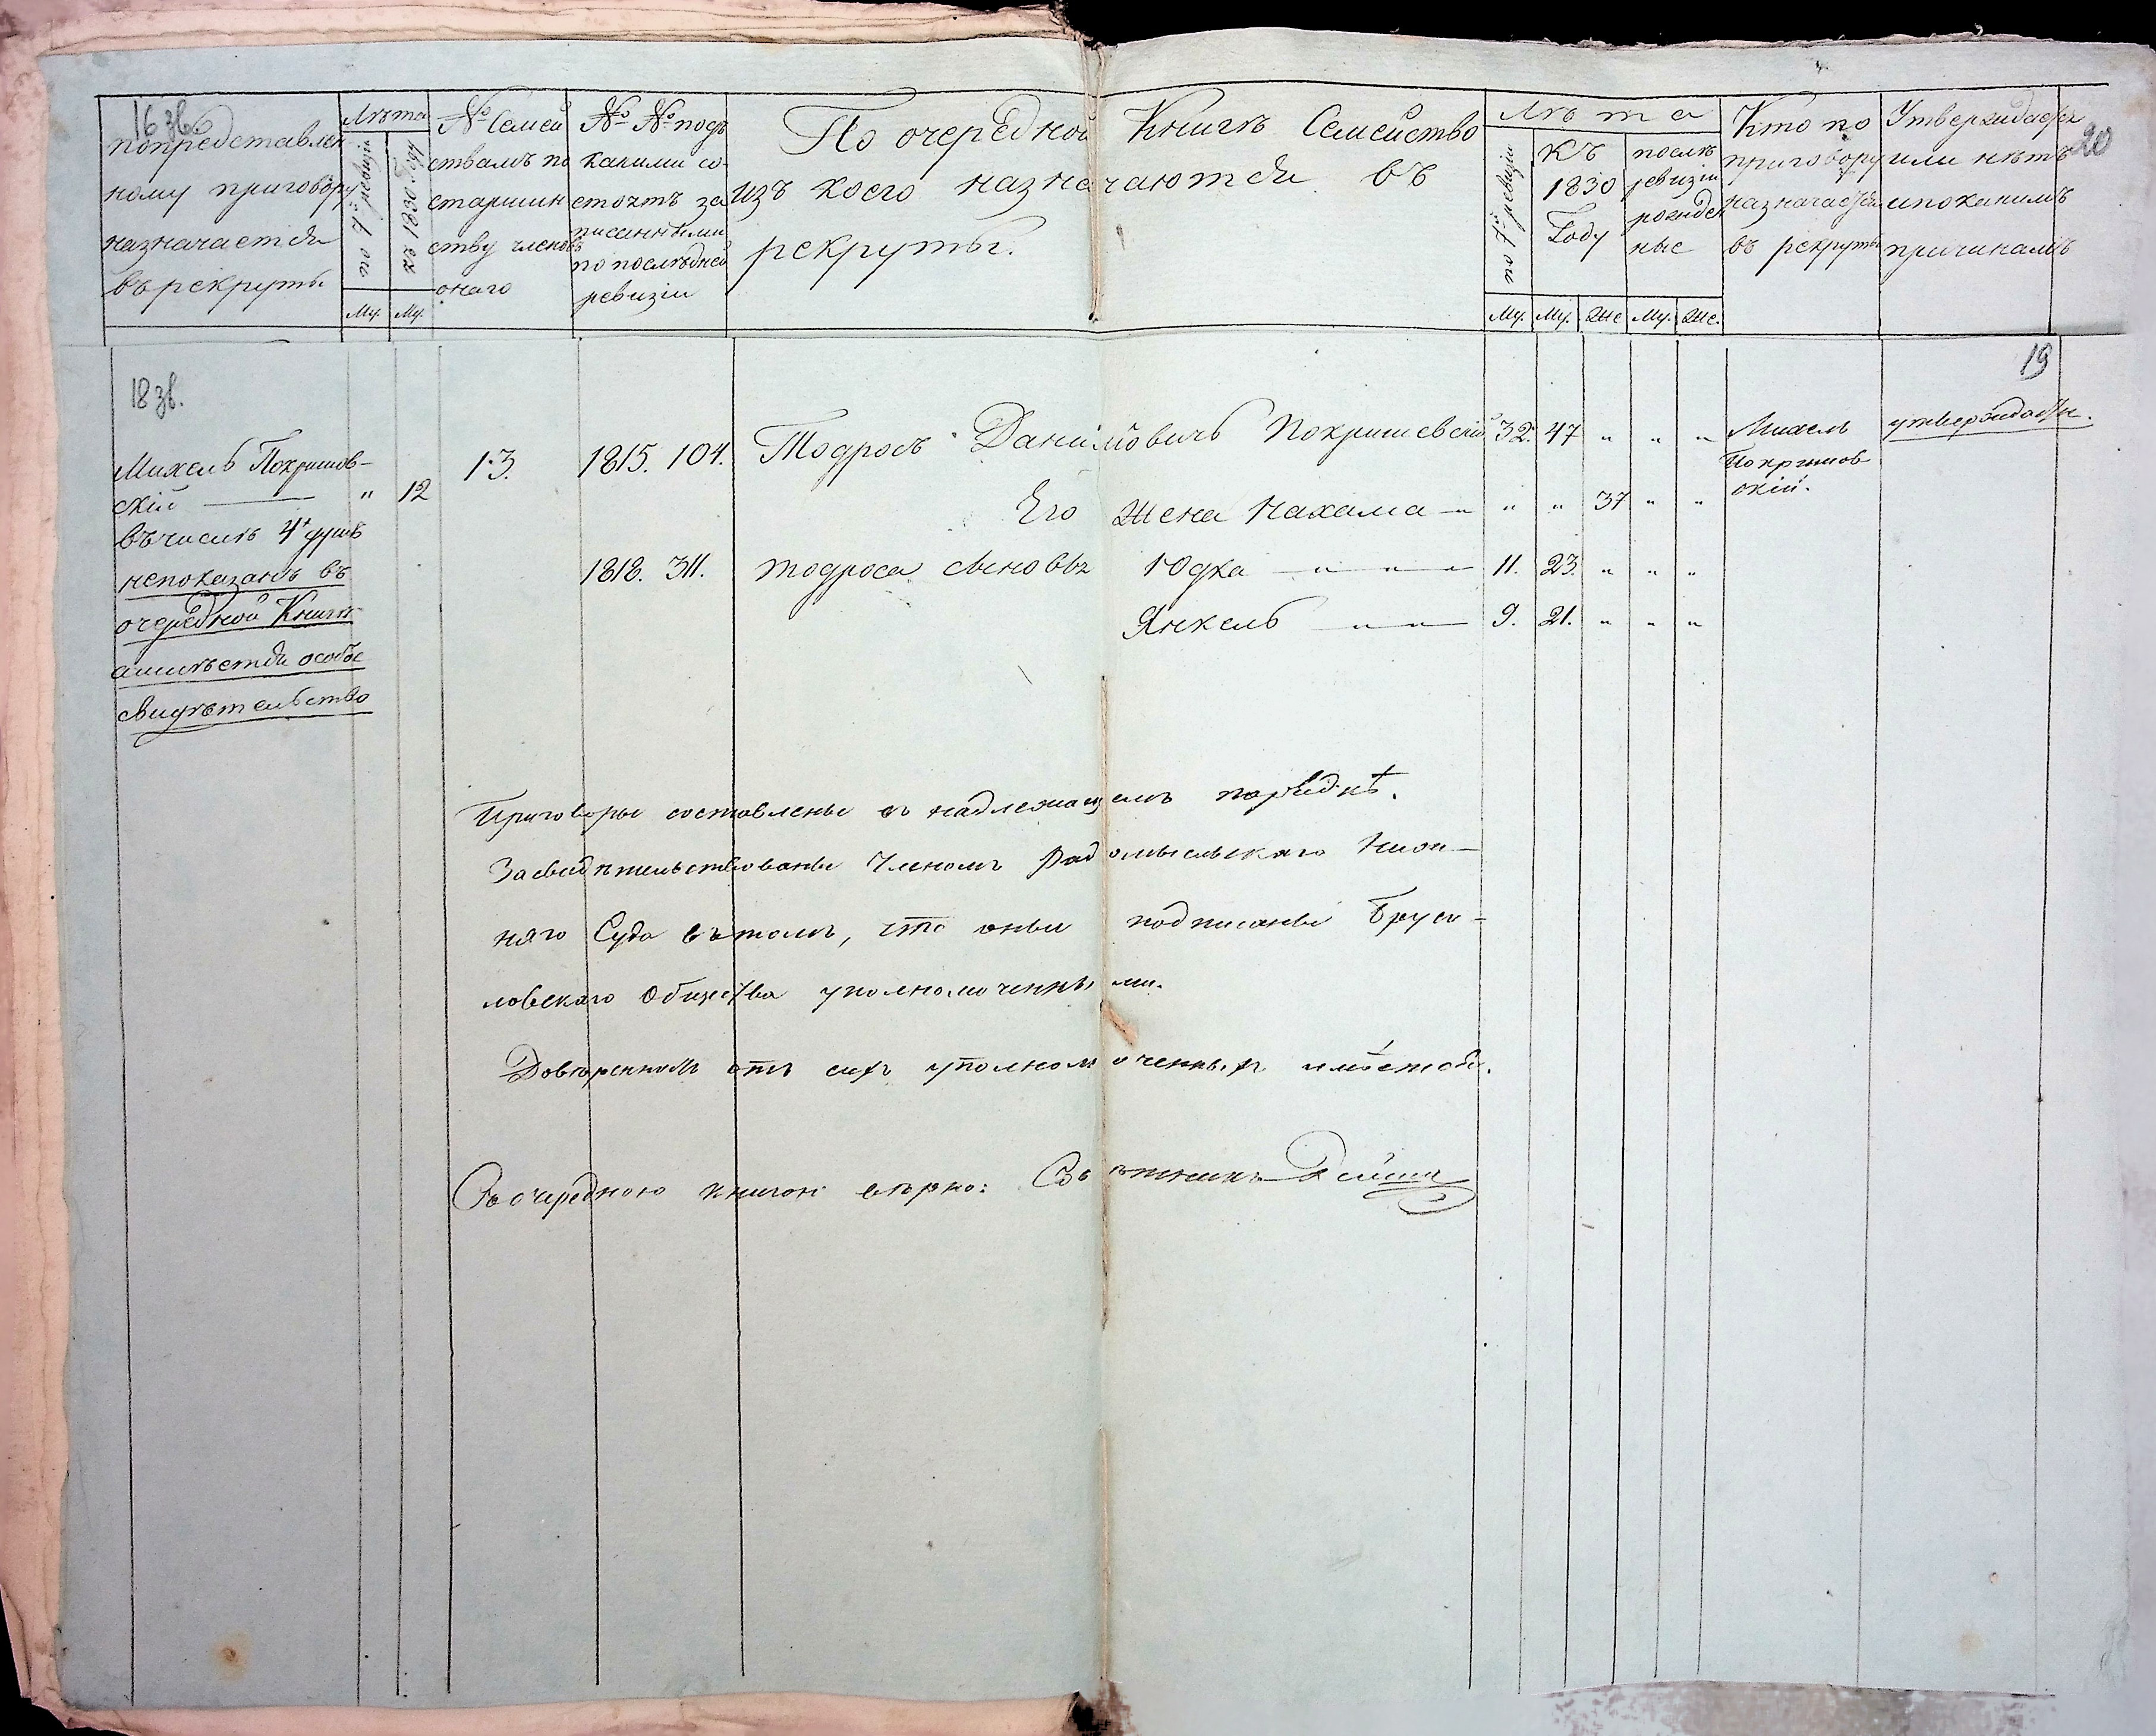 16 зв.
по представлен
ному приговору
назначается
въ рекруты
Лѣта
по 7й ревизіи
къ 1830 году
Му. Му.
№ Семей
ствамъ по
старшин
ству членовъ
онаго
№ № подъ
какими со-
стоятъ за
писанными
по послѣдней
ревизіи
По очередной Книгѣ Семейство
изъ коего назначаются въ
рекруты.
Лѣта
по 7й ревизіи
Къ
1830
Году
послѣ
ревизіи
рожден
ные
Му. Му. Же Му. Же.
Кто по
приговору
назначается
въ рекруты
Утверждается
или нѣтъ
и по какимъ
причинамъ
20
19
18 зв.
Михель Покришов-
скій — " 12
въ числѣ 4х душъ
непоказанъ въ
очередной Книгѣ
а имѣется особое
свидѣтельство
13. 1815. 104. Тодросъ Даниловичъ Покришевскій 32. 47 " " "
Его жена Нахама — " " " 37 " "
1818. 311. Тодроса сыновья Юдка — " — " — 11. 23. " " "
Янкель — " — " — 9. 21. " " "
Михель
Покришов
скій.
утверждается.
Приговоры составлены въ надлежащемъ порядкѣ.
Засвидѣтельствованы Членомъ Радомысльскаго Ниж-
няго Суда въ томъ, что оныи подписаны Бруси-
ловскаго Общества уполномоченными.
Довѣренность отъ сихъ уполномоченныхъ имѣется.
Съ очередною книгою вѣрно: Совѣтникъ